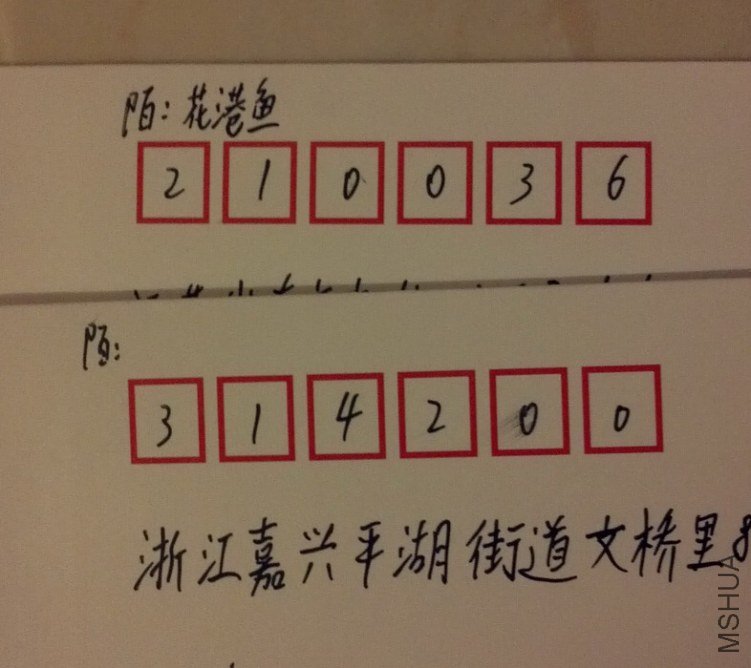 陌：花港鱼
210036
陌：
314200
浙江嘉兴平湖街道文桥里8
MSHUA